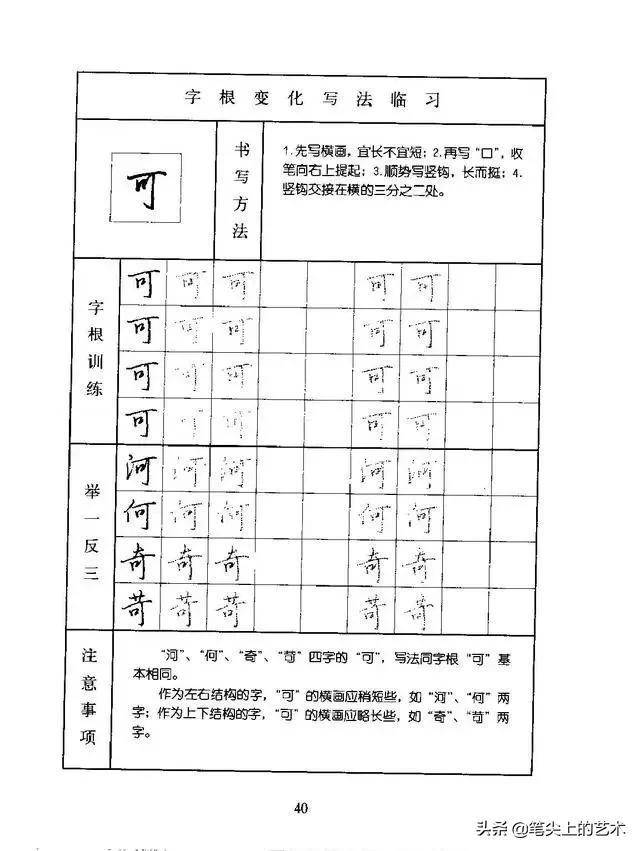 字根变化写法临习
可
书写方法
1.先写横画，宜长不宜短；2.再写“口”，收
笔向右上提起；3.顺势写竖钩，长而挺；4.
竖钩交接在横的三分之二处。
字根训练
可 可 可 可 可
可 可 可 可 可
可 可 可 可 可
可 可 可 可 可
举一反三
河 河 河 河 河
何 何 何 何 何
奇 奇 奇 奇 奇
苛 苛 苛 苛 苛
注意事项
“河”、“何”、“奇”、“苛”四字的“可”，写法同字根“可”基
本相同。
作为左右结构的字，“可”的横画应稍短些，如“河”、“何”两
字；作为上下结构的字，“可”的横画应略长些，如“奇”、“苛”两
字。
40
头条@笔尖上的艺术